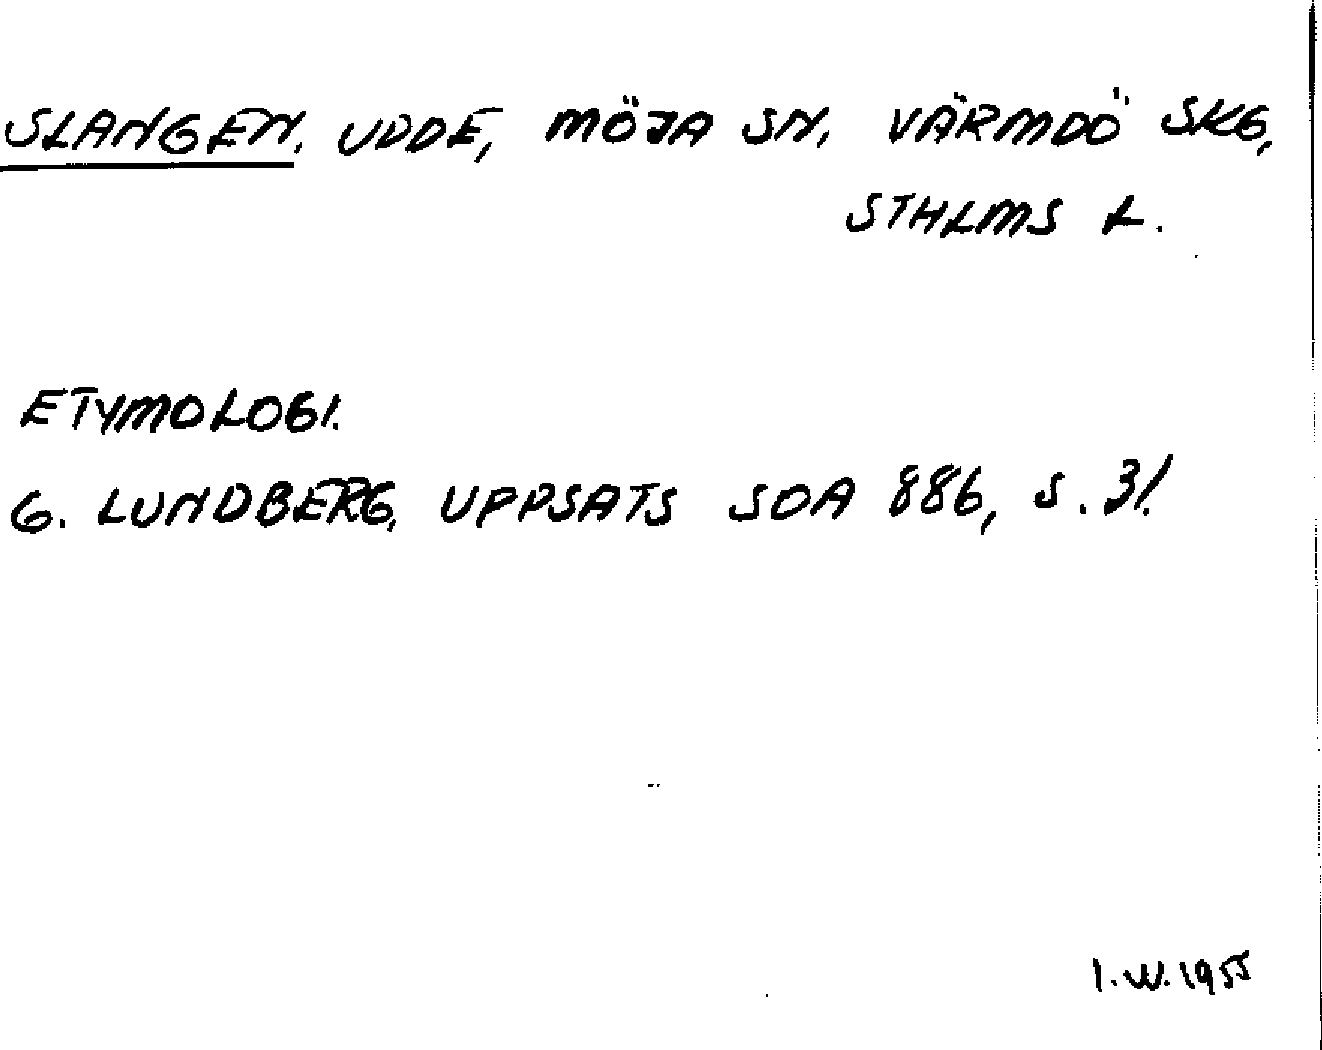 SLANGEN. UDDE, MÖJA SN. VÄRMDÖ SKG,
STHLMS L.
ETYMOLOGI.
G. LUNDBERG, UPPSATS SOA 886, S. 31.
I.W.1955